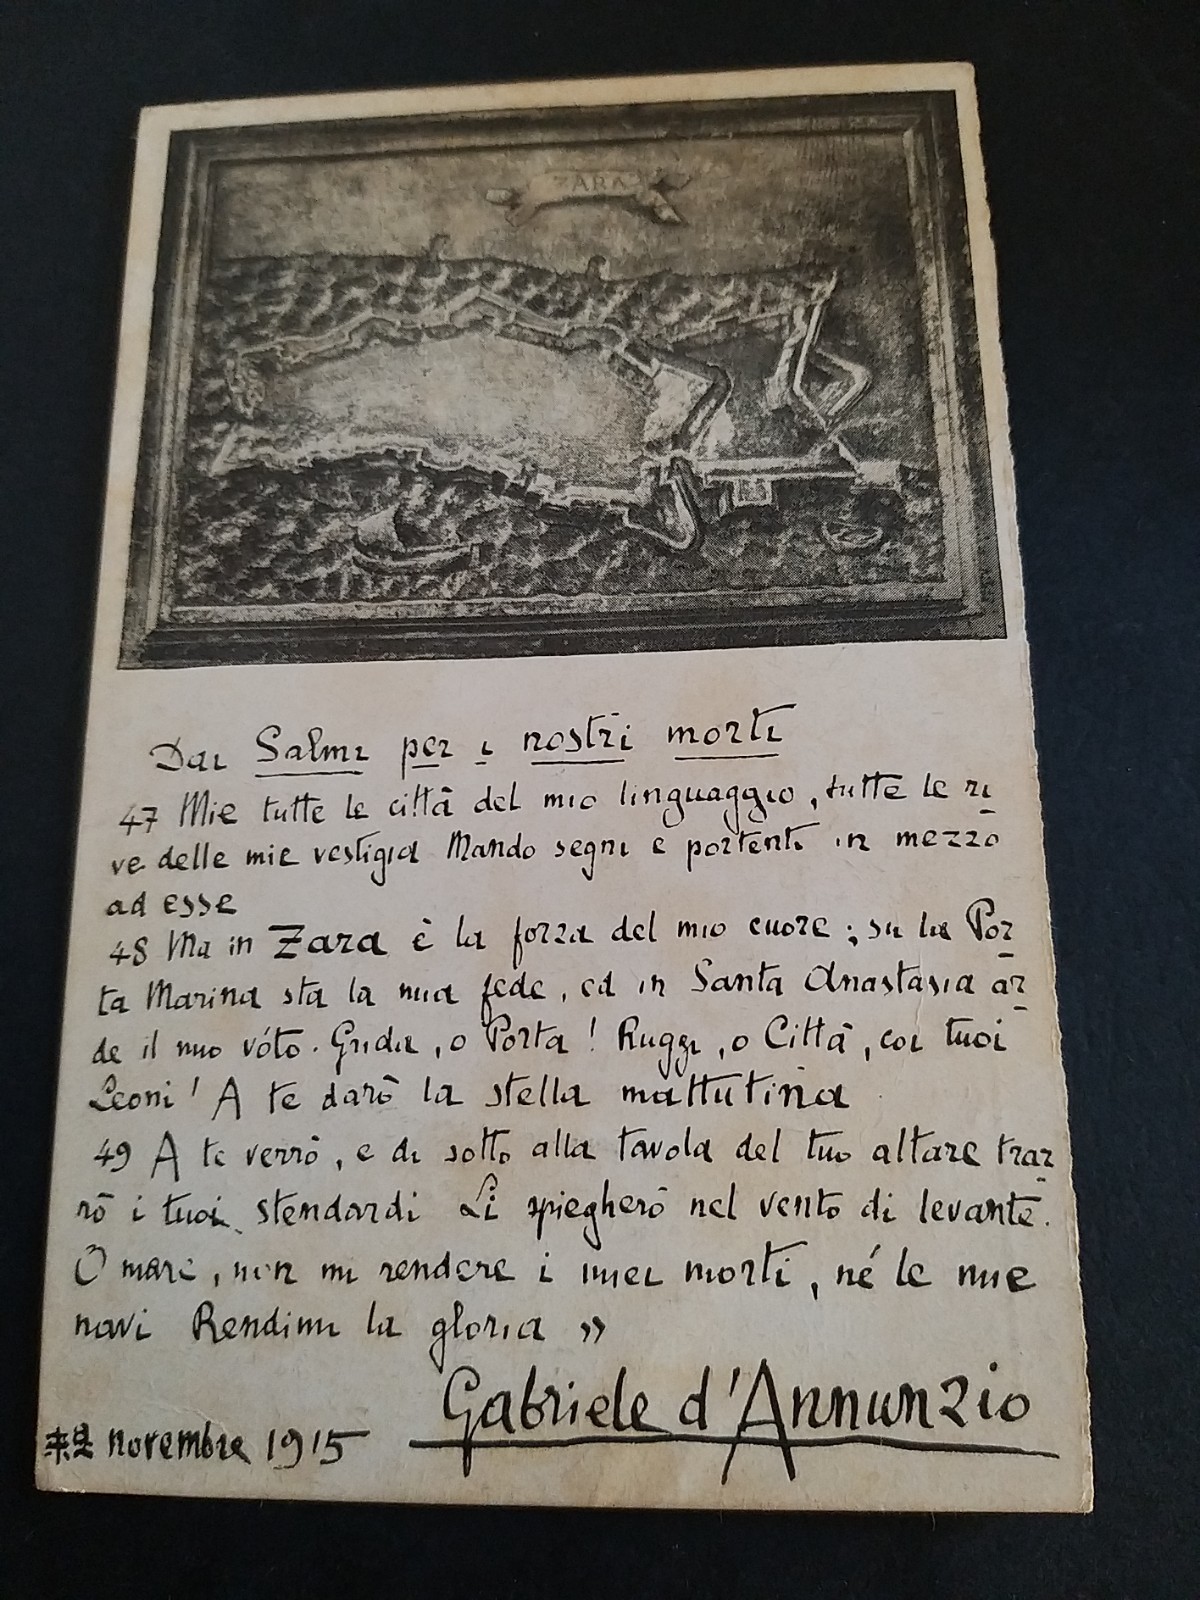 ZARA
Dai Salmi per i nostri morti
47 Mie tutte le città del mio linguaggio, tutte le ri
ve delle mie vestigia Mando segni e portenti in mezzo
ad esse
48 Ma in Zara è la forza del mio cuore; su la Por
ta Marina sta la mia fede, ed in Santa Anastasia ar
de il mio vóto. Grida, o Porta! Ruggi, o Città, coi tuoi
Leoni! A te darò la stella mattutina
49 A te verrò, e di sotto alla tavola del tuo altare trar
rò i tuoi stendardi Li spiegherò nel vento di levante.
O mare, non mi rendere i miei morti, né le mie
navi Rendimi la gloria »
Gabriele d'Annunzio
novembre 1915